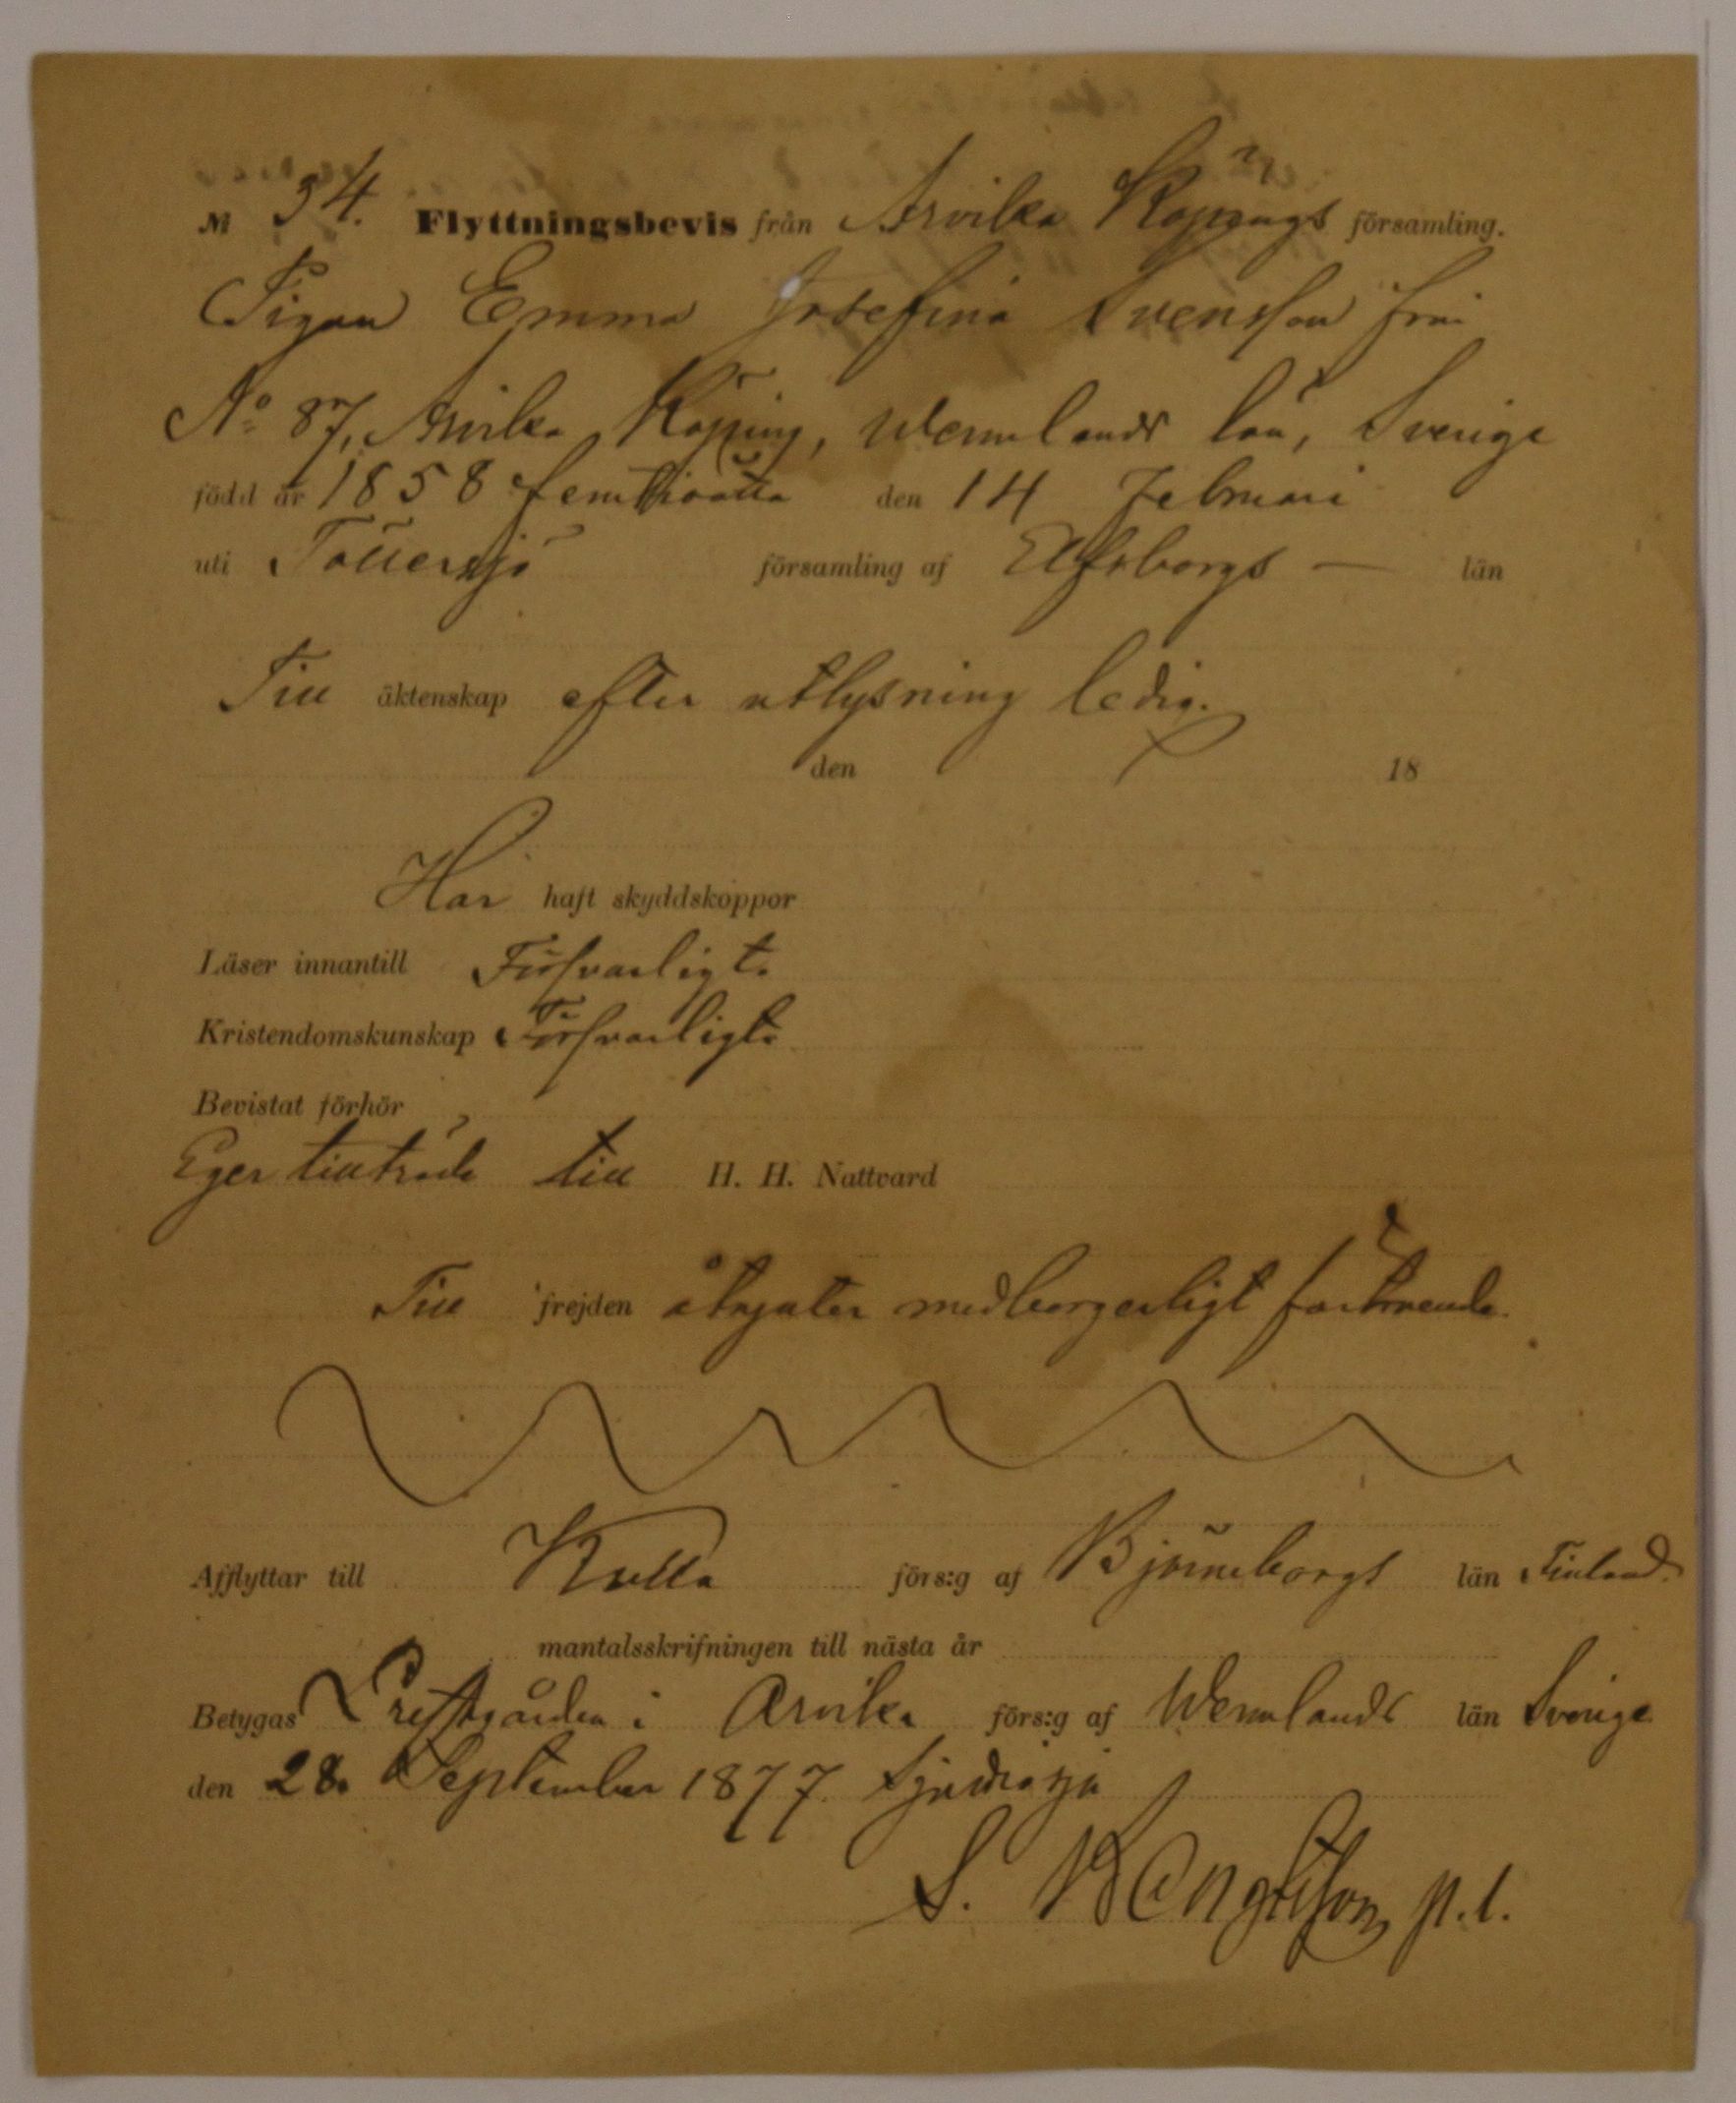 № 34. Flyttningsbevis från Arvika Köpings församling.
Pigan Emma Josefina Svensson från
No 87, Arvika Köping, Wermlands län, Sverige
född år 1858 femtioåtta den 14 Februari
uti Töllersjö församling af Elfsborgs — län
Till äktenskap efter utlysning ledig.
den 18
Har haft skyddskoppor
Läser innantill Försvarligt.
Kristendomskunskap Försvarligt.
Bevistat förhör
Eger tillträde till H. H. Nattvard
Till frejden åtnjuter medborgerligt förtroende.
Afflyttar till Kulla förs:g af Björneborgs län Finland.
mantalsskrifningen till nästa år
Betygas Prestgården i Arvika förs:g af Wermlands län Sverige
den 28. September 1877. sjuttiosju
S. Bengtsson